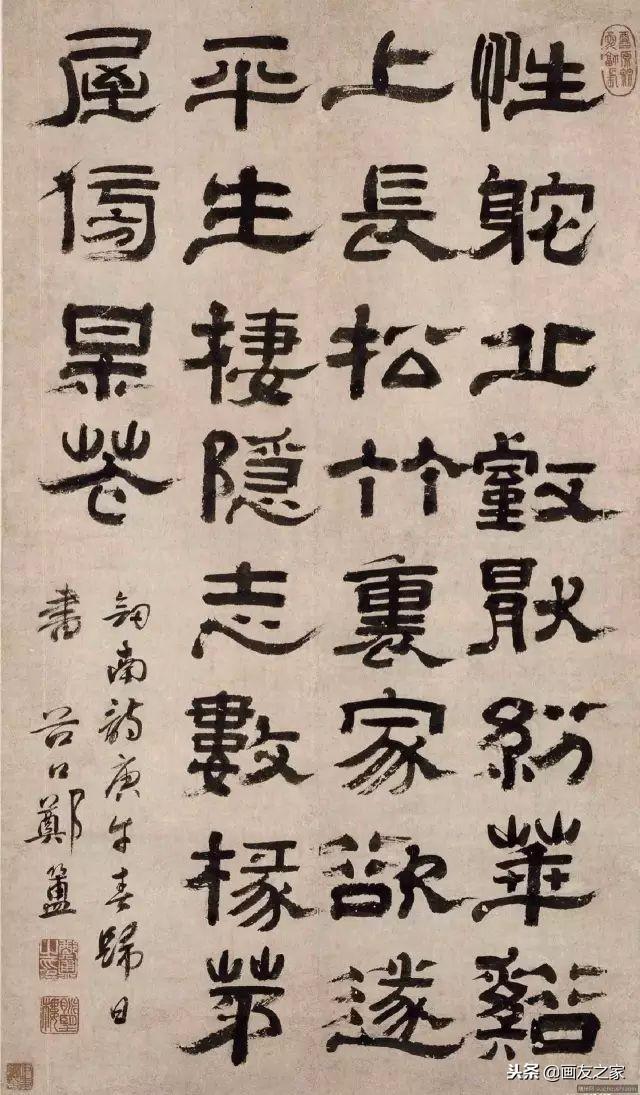 性躭丘壑猒紛華谿
上長松竹裏家欲遂
平生棲隱志數椽茅
屋傍某花
劒南詩庚午春歸日
書 谷口鄭簠
头条 @画友之家